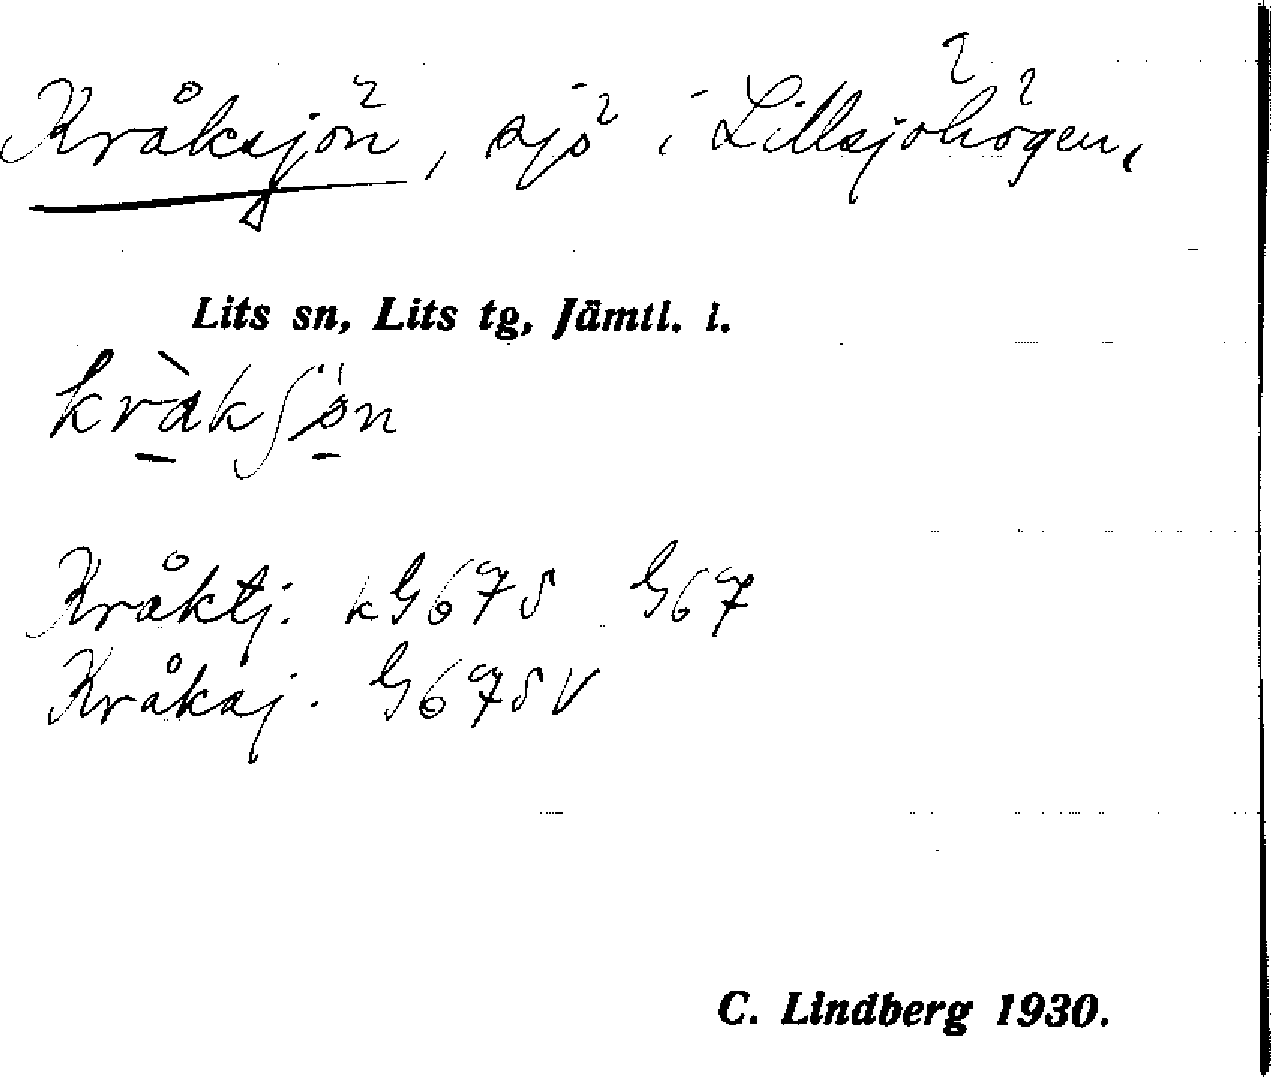 Kråksjön, sjö i Lillsjöhögen,
Lits sn, Lits tg, Jämtl. l.
kràkʃøn
Kråktj. kG67S G67
Kråksj. G67SV
C. Lindberg 1930.